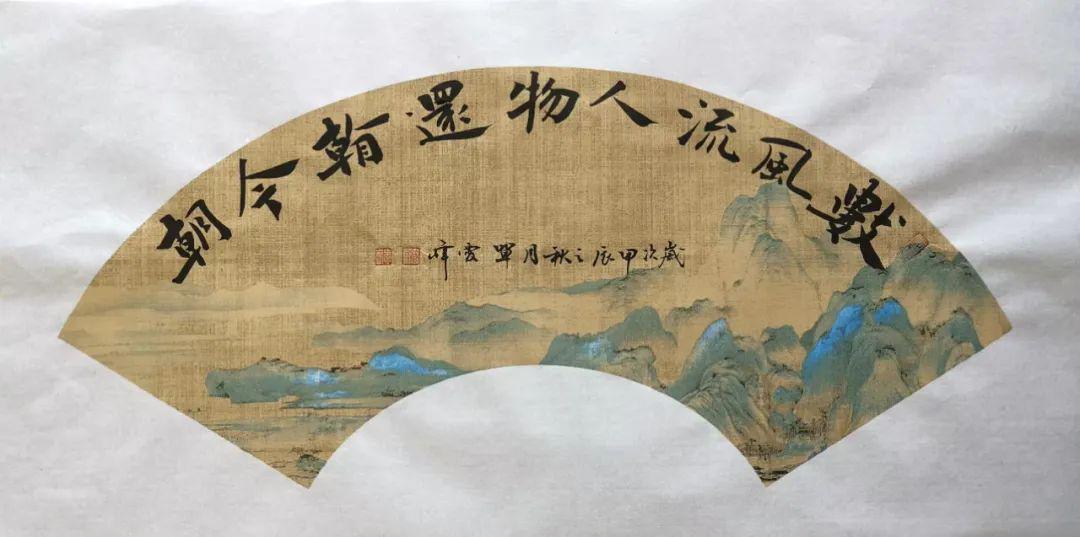 數風流人物還看今朝
歲次甲辰之秋月單